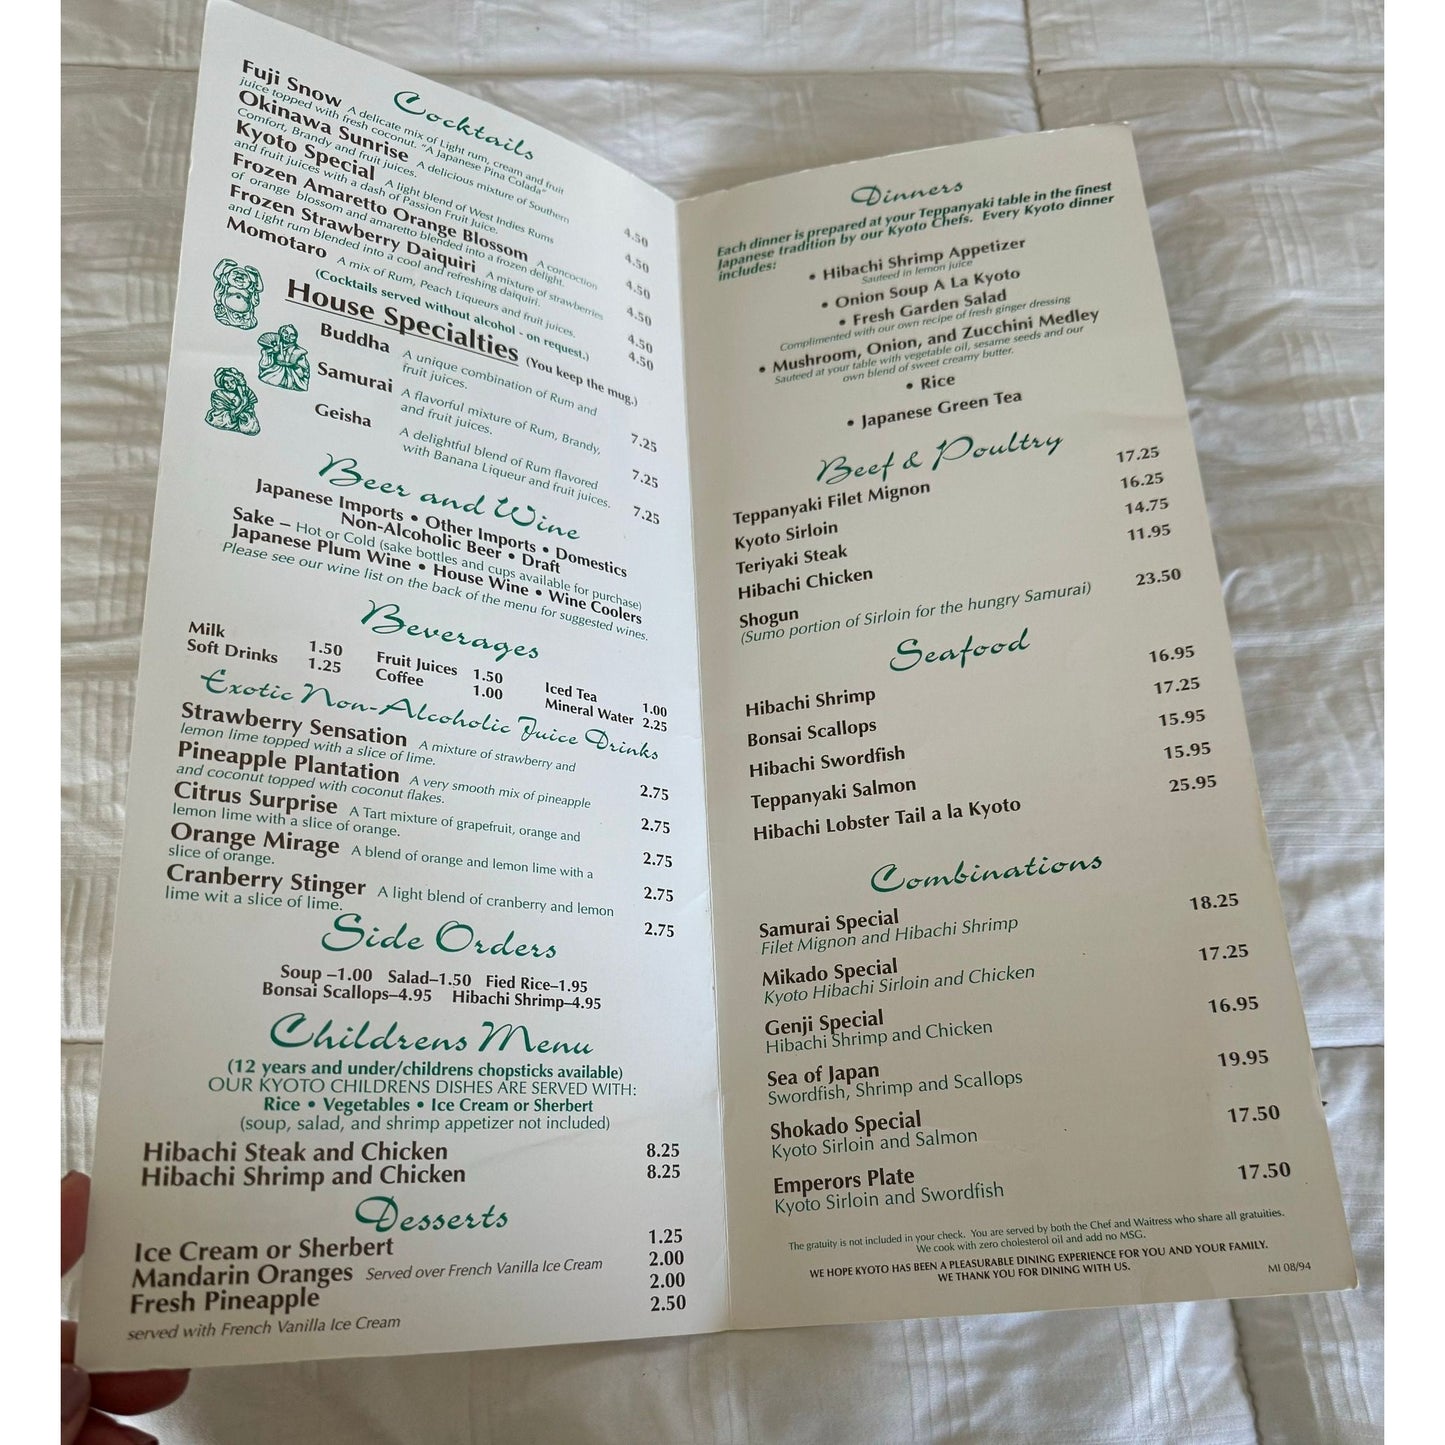 Cocktails
Fuji Snow A delicate mix of Light rum, cream and fruit
juice topped with fresh coconut. "A Japanese Pina Colada"
4.50
Okinawa Sunrise A delicious mixture of Southern
Comfort, Brandy and fruit juices.
4.50
Kyoto Special A light blend of West Indies Rums
and fruit juices with a dash of Passion Fruit Juice.
4.50
Frozen Amaretto Orange Blossom A concoction
of orange blossom and amaretto blended into a frozen delight.
4.50
Frozen Strawberry Daiquiri A mixture of strawberries
and Light rum blended into a cool and refreshing daiquiri.
4.50
Momotaro A mix of Rum, Peach Liqueurs and fruit juices.
4.50
(Cocktails served without alcohol - on request.)
House Specialties (You keep the mug.)
Buddha A unique combination of Rum and
fruit juices.
7.25
Samurai A flavorful mixture of Rum, Brandy,
and fruit juices.
7.25
Geisha A delightful blend of Rum flavored
with Banana Liqueur and fruit juices.
7.25
Beer and Wine
Japanese Imports • Other Imports • Domestics
Non-Alcoholic Beer • Draft
Sake – Hot or Cold (sake bottles and cups available for purchase)
Japanese Plum Wine • House Wine • Wine Coolers
Please see our wine list on the back of the menu for suggested wines.
Beverages
Milk 1.50 Fruit Juices 1.50 Iced Tea 1.00
Soft Drinks 1.25 Coffee 1.00 Mineral Water 2.25
Exotic Non-Alcoholic Juice Drinks
Strawberry Sensation A mixture of strawberry and
lemon lime topped with a slice of lime.
2.75
Pineapple Plantation A very smooth mix of pineapple
and coconut topped with coconut flakes.
2.75
Citrus Surprise A Tart mixture of grapefruit, orange and
lemon lime with a slice of orange.
2.75
Orange Mirage A blend of orange and lemon lime with a
slice of orange.
2.75
Cranberry Stinger A light blend of cranberry and lemon
lime wit a slice of lime.
2.75
Side Orders
Soup –1.00 Salad–1.50 Fied Rice–1.95
Bonsai Scallops–4.95 Hibachi Shrimp–4.95
Childrens Menu
(12 years and under/childrens chopsticks available)
OUR KYOTO CHILDRENS DISHES ARE SERVED WITH:
Rice • Vegetables • Ice Cream or Sherbert
(soup, salad, and shrimp appetizer not included)
Hibachi Steak and Chicken 8.25
Hibachi Shrimp and Chicken 8.25
Desserts
Ice Cream or Sherbert 1.25
Mandarin Oranges Served over French Vanilla Ice Cream 2.00
Fresh Pineapple 2.00
served with French Vanilla Ice Cream 2.50
Dinners
Each dinner is prepared at your Teppanyaki table in the finest
Japanese tradition by our Kyoto Chefs. Every Kyoto dinner
includes:
• Hibachi Shrimp Appetizer
Sauteed in lemon juice
• Onion Soup A La Kyoto
• Fresh Garden Salad
Complimented with our own recipe of fresh ginger dressing
• Mushroom, Onion, and Zucchini Medley
Sauteed at your table with vegetable oil, sesame seeds and our
own blend of sweet creamy butter.
• Rice
• Japanese Green Tea
Beef & Poultry
Teppanyaki Filet Mignon 17.25
Kyoto Sirloin 16.25
Teriyaki Steak 14.75
Hibachi Chicken 11.95
Shogun 23.50
(Sumo portion of Sirloin for the hungry Samurai)
Seafood
Hibachi Shrimp 16.95
Bonsai Scallops 17.25
Hibachi Swordfish 15.95
Teppanyaki Salmon 15.95
Hibachi Lobster Tail a la Kyoto 25.95
Combinations
Samurai Special 18.25
Filet Mignon and Hibachi Shrimp
Mikado Special 17.25
Kyoto Hibachi Sirloin and Chicken
Genji Special 16.95
Hibachi Shrimp and Chicken
Sea of Japan 19.95
Swordfish, Shrimp and Scallops
Shokado Special 17.50
Kyoto Sirloin and Salmon
Emperors Plate 17.50
Kyoto Sirloin and Swordfish
The gratuity is not included in your check. You are served by both the Chef and Waitress who share all gratuities.
We cook with zero cholesterol oil and add no MSG.
WE HOPE KYOTO HAS BEEN A PLEASURABLE DINING EXPERIENCE FOR YOU AND YOUR FAMILY.
WE THANK YOU FOR DINING WITH US.
MI 08/94